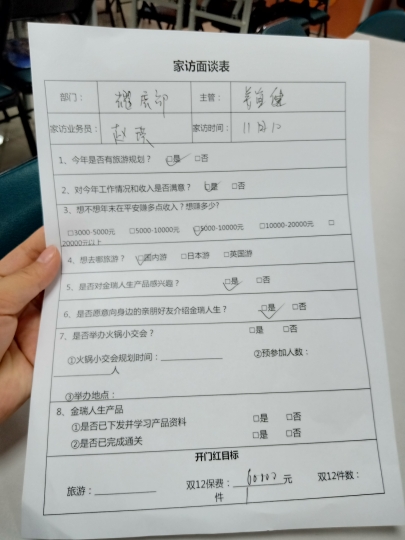 家访面谈表
部门：
主管：
家访业务员：
家访时间：11月10
1、今年是否有旅游规划？ □是 □否
2、对今年工作情况和收入是否满意？ □是 □否
3、想不想年末在平安赚多点收入？想赚多少？
□3000-5000元 □5000-10000元 □5000-10000元 □10000-20000元 □
20000元以上
4、想去哪旅游？ □国内游 □日本游 □英国游
5、是否对金瑞人生产品感兴趣？ □是 □否
6、是否愿意向身边的亲朋好友介绍金瑞人生？ □是 □否
7、是否举办火锅小交会？ □是 □否
①火锅小交会规划时间：____________ ②预参加人数：
____________人
③举办地点：
8、金瑞人生产品
①是否已下发并学习产品资料 □是 □否
②是否已完成通关 □是 □否
开门红目标
旅游：____________ 双12保费：元 双12件数：
件